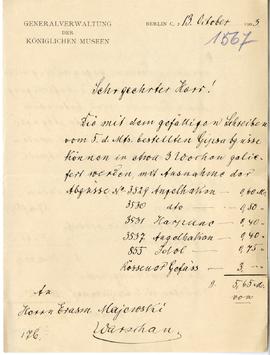 GENERALVERWALTUNG
DER
KÖNIGLICHEN MUSEEN
BERLIN C., 13 October 1903
1567
Sehrgeehrter Herr!
Die mit dem gefälligen Schreiben
vom 5. d. Mts. bestellten Gypsabgüsse
können in etwa 3 Wochen gelie-
fert werden, mit Ausnahme der
Abgüsse No 3529 Angelhaken — 0,60 M.
3530 dto — 0,50 "
3531 Harpune — 0,40 "
3537 Angelhaken — 0,40 "
855 Idol — 0,75 "
Gefäss — 3, — "
5,65 M.
von
An
Herrn Erasm Majewski
Warschau